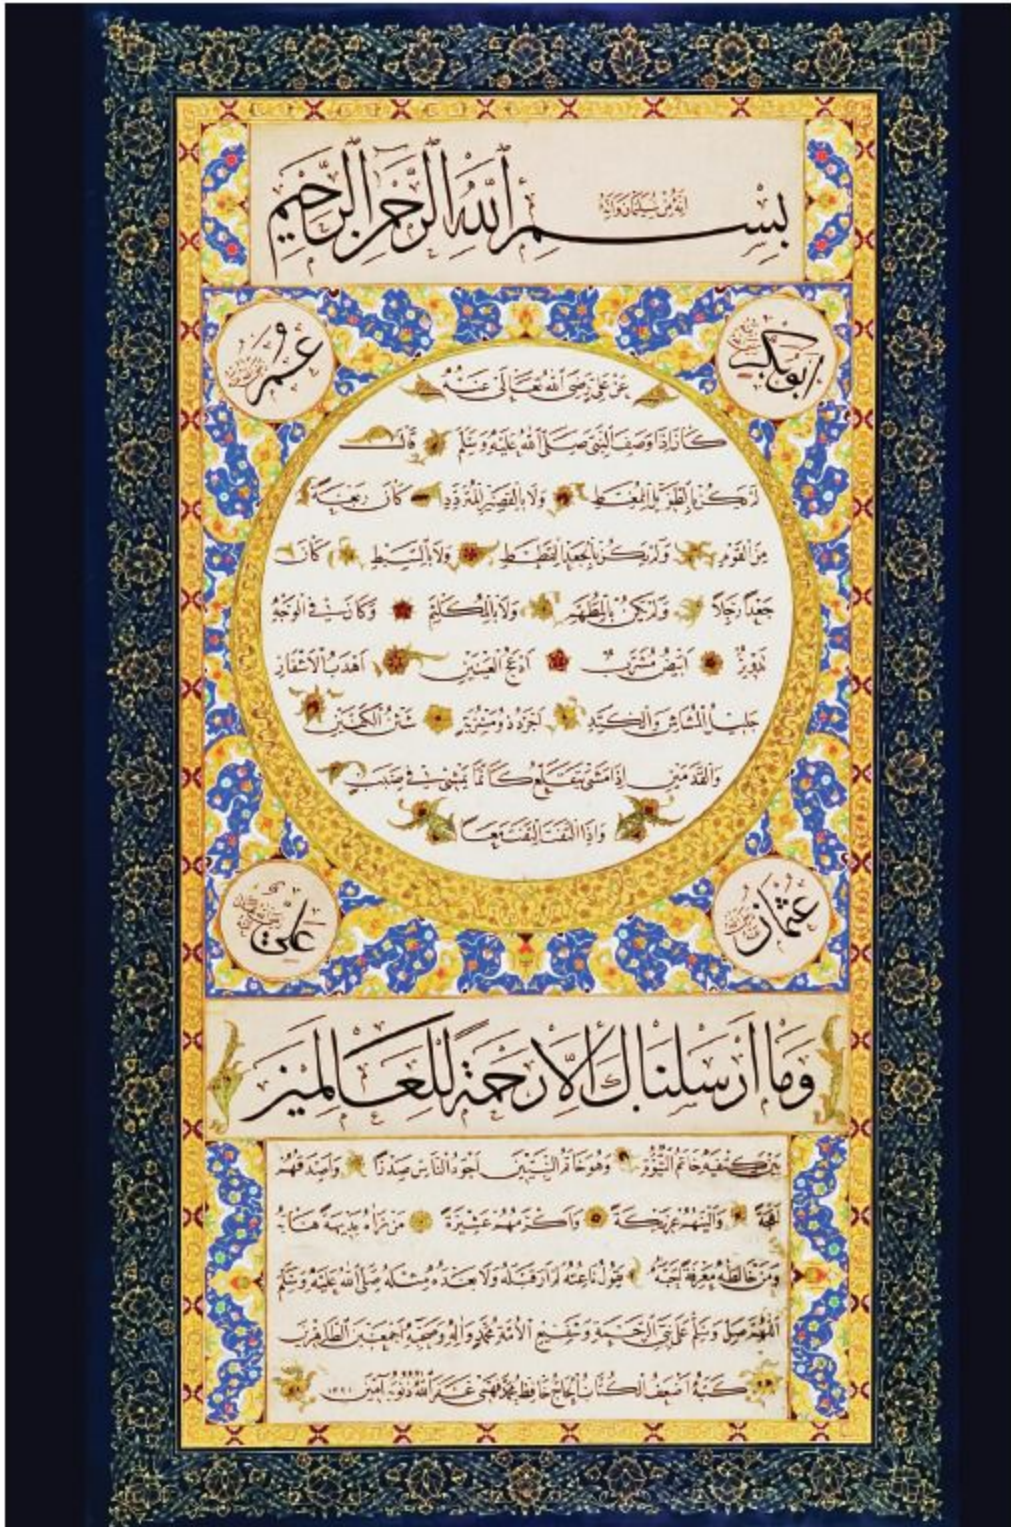 بِسْمِ اللّٰهِ الرَّحْمٰنِ الرَّحِيمِ
اِنَّهُ مِنْ سُلَيْمَانَ وَاِنَّهُ
ابوبكر
عمر
عَنْ عَلِيٍّ رَضِيَ اللّٰهُ تَعَالٰى عَنْهُ
كَانَ اِذَا وَصَفَ النَّبِيَّ صَلَّى اللّٰهُ عَلَيْهِ وَسَلَّمَ قَالَ
لَمْ يَكُنْ بِالطَّوِيلِ الْمُمَّغِطِ وَلَا بِالْقَصِيرِ الْمُتَرَدِّدِ كَانَ رَبْعَةً
مِنَ الْقَوْمِ وَلَمْ يَكُنْ بِالْجَعْدِ الْقَطَطِ وَلَا بِالسَّبْطِ كَانَ
جَعْداً رَجِلاً وَلَمْ يَكُنْ بِالْمُطَهَّمِ وَلَا بِالْمُكَلْثَمِ وَكَانَ فِي الْوَجْهِ
تَدْوِيرٌ اَبْيَضُ مُشْرَبٌ اَدْعَجُ الْعَيْنَيْنِ اَهْدَبُ الْاَشْفَارِ
جَلِيلُ الْمُشَاشِ وَالْكَتَدِ اَجْرَدُ ذُو مَسْرُبَةٍ شَثْنُ الْكَفَّيْنِ
وَالْقَدَمَيْنِ اِذَا مَشٰى يَتَقَلَّعُ كَاَنَّمَا يَمْشِي فِي صَبَبٍ
وَاِذَا الْتَفَتَ الْتَفَتَ مَعاً
عثمان
علي
وَمَا اَرْسَلْنَاكَ اِلَّا رَحْمَةً لِلْعَالَمِينَ
بَيْنَ كَتِفَيْهِ خَاتَمُ النُّبُوَّةِ وَهُوَ خَاتَمُ النَّبِيِّينَ اَجْوَدُ النَّاسِ صَدْرًا وَاَصْدَقُهُمْ
لَهْجَةً وَاَلْيَنُهُمْ عَرِيكَةً وَاَكْرَمُهُمْ عَشِيرَةً مَنْ رَآهُ بَدِيهَةً هَابَهُ
وَمَنْ خَالَطَهُ مَعْرِفَةً اَحَبَّهُ يَقُولُ نَاعِتُهُ لَمْ اَرَ قَبْلَهُ وَلَا بَعْدَهُ مِثْلَهُ صَلَّى اللّٰهُ عَلَيْهِ وَسَلَّمَ
اَللّٰهُمَّ صَلِّ وَسَلِّمْ عَلٰى نَبِيِّ الرَّحْمَةِ وَشَفِيعِ الْاُمَّةِ مُحَمَّدٍ وَآلِهِ وَصَحْبِهِ اَجْمَعِينَ الطَّاهِرِينَ
كَتَبَهُ اَضْعَفُ الْكُتَّابِ الْحَاجُّ حَافِظْ مُحَمَّدْ فَهْمِي غَفَرَ اللّٰهُ ذُنُوبَهُ آمِينَ ١٢٩١